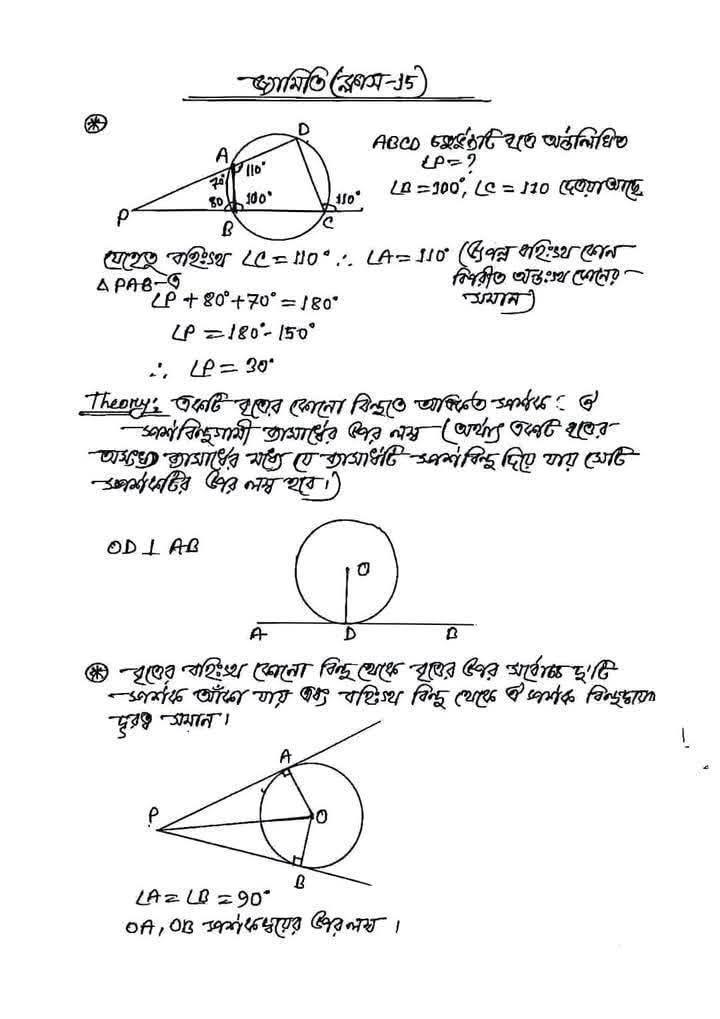 জ্যামিতি (ক্লাস-15)
ABCD চতুর্ভুজটি বৃত্তে অন্তর্লিখিত
∠P = ?
∠B = 100°, ∠C = 110 দেওয়া আছে
D
A
110°
70°
80
100°
110°
P
B
C
যেহেতু বহিঃস্থ ∠C = 110° ∴ ∠A = 110° (উৎপন্ন বহিঃস্থ কোন
বিপরীত অন্তঃস্থ কোনের
সমান)
△ PAB-এ
∠P + 80° + 70° = 180°
∠P = 180° - 150°
∴ ∠P = 30°
Theory: একটি বৃত্তের কোনো বিন্দুতে অঙ্কিত স্পর্শক: ঐ
স্পর্শবিন্দুগামী ব্যাসার্ধের উপর লম্ব (অর্থাৎ একটি বৃত্তের
অসংখ্য ব্যাসার্ধের মধ্যে যে ব্যাসার্ধটি স্পর্শবিন্দু দিয়ে যায় সেটি
স্পর্শকটির উপর লম্ব হবে।)
OD ⊥ AB
O
A D B
বৃত্তের বহিঃস্থ কোনো বিন্দু থেকে বৃত্তের উপর সর্বোচ্চ দু'টি
স্পর্শক আঁকা যায় এবং বহিঃস্থ বিন্দু থেকে ঐ স্পর্শক বিন্দুদ্বয়ের
দূরত্ব সমান।
A
P
O
B
∠A = ∠B = 90°
OA, OB স্পর্শকদ্বয়ের উপর লম্ব।